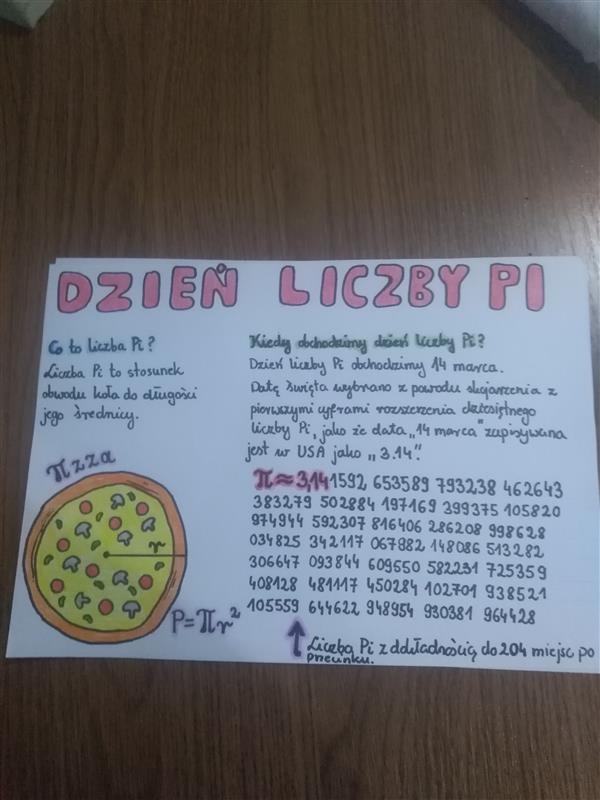 DZIEŃ LICZBY PI
Co to liczba Pi?
Liczba Pi to stosunek
obwodu koła do długości
jego średnicy.
Kiedy obchodzimy dzień liczby Pi?
Dzień liczby Pi obchodzimy 14 marca.
Datę święta wybrano z powodu skojarzenia z
pierwszymi cyframi rozszerzenia dziesiętnego
liczby Pi, jako że data „14 marca” zapisywana
jest w USA jako „3.14”.
πzza
r
P=πr²
π≈3,141592 653589 793238 462643
383279 502884 197169 399375 105820
974944 592307 816406 286208 998628
034825 342117 067982 148086 513282
306647 093844 609550 582231 725359
408128 481117 450284 102701 938521
105559 644622 948954 930381 964428
Liczba Pi z dokładnością do 204 miejsc po
przecinku.